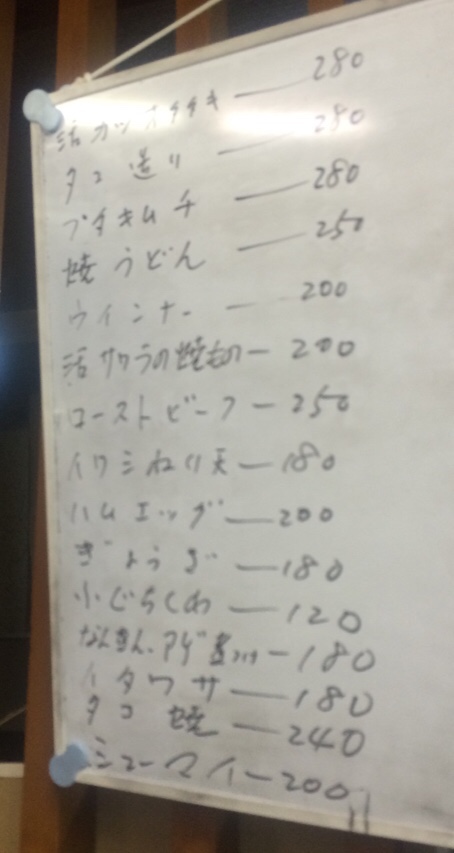 活カツオタタキ — 280
タコ造り — 280
ブタキムチ — 280
焼うどん — 250
ウインナー — 200
活サワラの焼もの — 200
ローストビーフ — 250
イワシねり天 — 180
ハムエッグ — 200
ぎょうざ — 180
小ぐちくわ — 120
なんきん、アゲ — 180
イタワサ — 180
タコ焼 — 240
シューマイ — 200